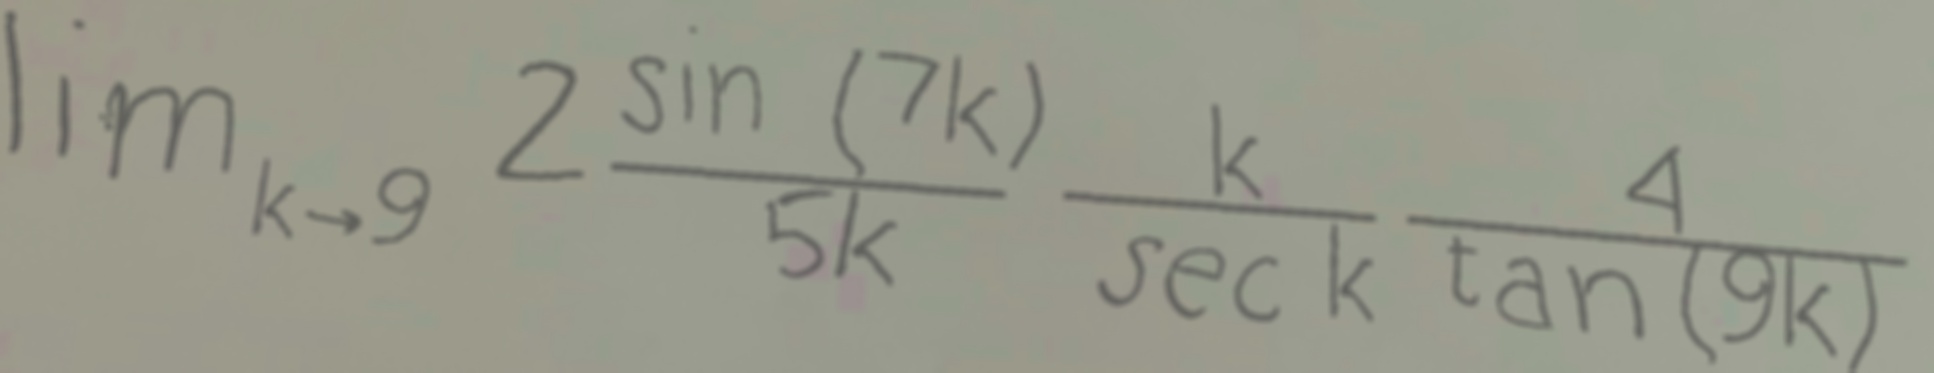 \lim_{k \to 9} 2 \frac{\sin (7k)}{5k} \frac{k}{\sec k} \frac{4}{\tan (9k)}